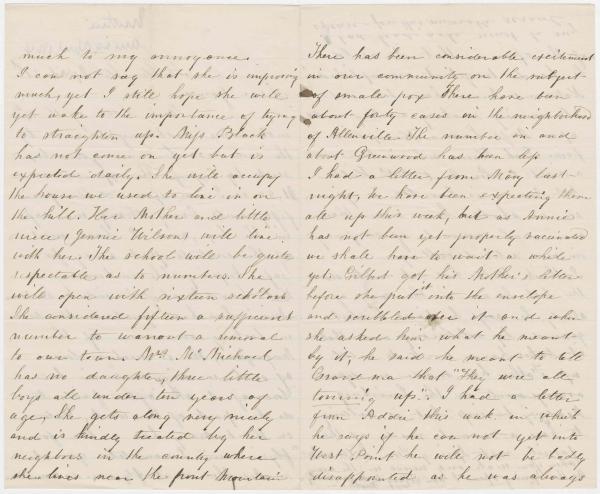 much to my annoyance.
I can not say that she is improving
much, yet I still hope she will
yet wake to the importance of trying
to straighten up. Miss Black
has not come on yet but is
expected daily. She will occupy
the house we used to live in on
the hill. Her Mother and little
niece (Jennie Wilson) will live
with her. The school will be quite
respectable as to numbers. She
will open with sixteen scholars
She considered fifteen a sufficient
number to warrant a removal
to our town. Mrs McMichael
has no daughter, three little
boys all under ten years of
age. She gets along very nicely
and is kindly treated by her
neighbors in the country where
she lives near the front Mountain
There has been considerable excitement
in our community on the subject
of small pox There have been
about forty cases in the neighborhood
of Allenville. The number in and
about Greenwood has been less
I had a letter from Mary last
night, We have been expecting them
all up this week, but as Annie
has not been yet properly vaccinated
we shall have to wait a while
yet. Gilbert got his Mother's letter
before she put it into the envelope
and scribbled over it and when
she asked him what he meant
by it, he said he meant to tell
Grand ma that "They were all
coming up". I had a letter
from Addie this week in which
he says if he can not get into
West Point he will not be badly
disappointed as he was always